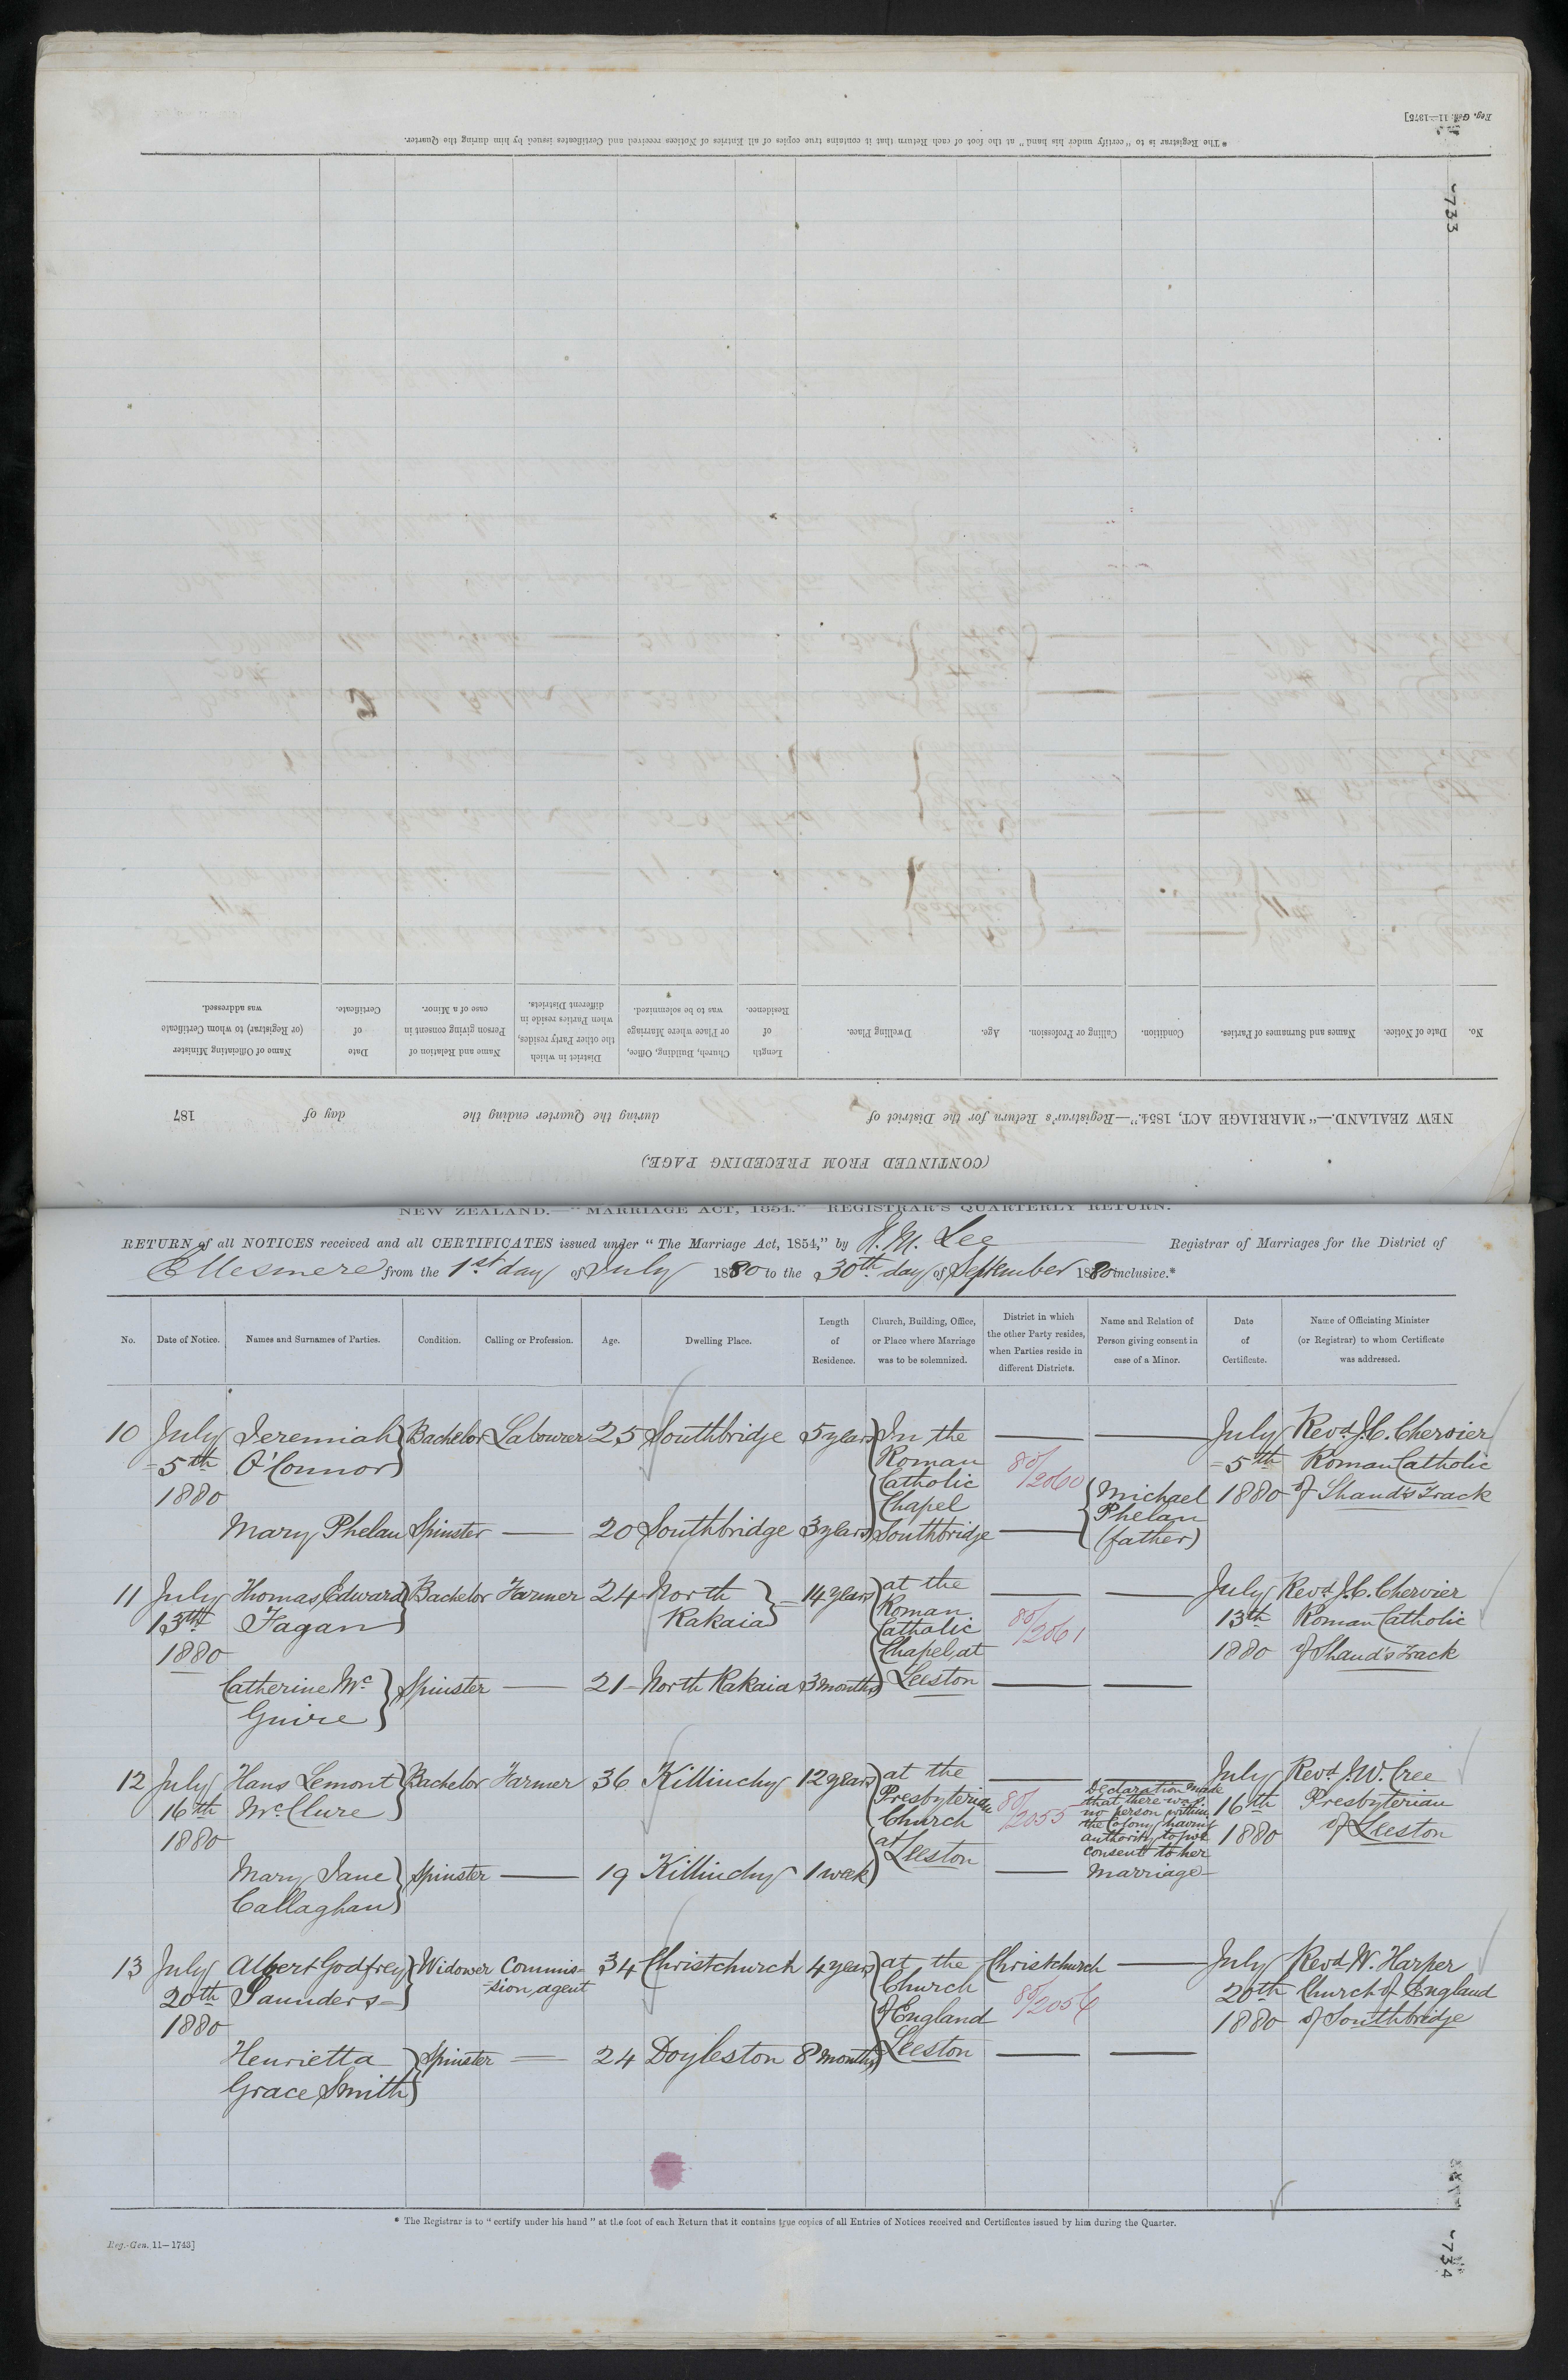 Reg. Gen. 11—1875]
* The Registrar is to "certify under his hand" at the foot of each Return that it contains true copies of all Entries of Notices received and Certificates issued by him during the Quarter.
733
No.
Date of Notice.
Names and Surnames of Parties.
Condition.
Calling or Profession.
Age.
Dwelling Place.
Length
of
Residence.
Church, Building, Office,
or Place where Marriage
was to be solemnized.
District in which
the other Party resides,
when Parties reside in
different Districts.
Name and Relation of
Person giving consent in
case of a Minor.
Date
of
Certificate.
Name of Officiating Minister
(or Registrar) to whom Certificate
was addressed.
NEW ZEALAND.—"MARRIAGE ACT, 1854."—Registrar's Return for the District of during the Quarter ending the day of 187
(CONTINUED FROM PRECEDING PAGE.)
NEW ZEALAND.—"MARRIAGE ACT, 1854."—REGISTRAR'S QUARTERLY RETURN.
RETURN of all NOTICES received and all CERTIFICATES issued under "The Marriage Act, 1854," by H. M. Lee Registrar of Marriages for the District of
Ellesmere from the 1st day of July 1880 to the 30th day of September 1880 inclusive.*
No.
Date of Notice.
Names and Surnames of Parties.
Condition.
Calling or Profession.
Age.
Dwelling Place.
Length
of
Residence.
Church, Building, Office,
or Place where Marriage
was to be solemnized.
District in which
the other Party resides,
when Parties reside in
different Districts.
Name and Relation of
Person giving consent in
case of a Minor.
Date
of
Certificate.
Name of Officiating Minister
(or Registrar) to whom Certificate
was addressed.
10 July Jeremiah Bachelor Labourer 25 Southbridge 5 years In the — — July Revd. J. C. Chervier
5th O'Connor Roman 80/2060 5th Roman Catholic
1880 Catholic Michael 1880 of Shand's Track
Chapel Phelan
Mary Phelan Spinster — 20 Southbridge 3 years Southbridge — (father)
11 July Thomas Edward Bachelor Farmer 24 North 14 years at the — — July Revd. J. C. Chervier
13th Fagan Rakaia Roman 80/2061 13th Roman Catholic
1880 Catholic 1880 of Shand's Track
Chapel at
Catherine Mc Spinster — 21 North Rakaia 3 months Leeston — —
Guire
12 July Hans Lemont Bachelor Farmer 36 Killinchy 12 years at the — — July Revd. J. W. Cree
16th McClure Presbyterian 80/2055 Declaration made 16th Presbyterian
1880 Church that there was 1880 of Leeston
at no person within
Leeston the Colony having
authority to give
consent to her
Mary Jane Spinster — 19 Killinchy 1 week — marriage
Callaghan
13 July Albert Godfrey Widower Commis- 34 Christchurch 4 years at the Christchurch — July Revd. W. Harper
20th Saunders sion agent Church 80/2056 20th Church of England
1880 of England 1880 of Southbridge
Henrietta Spinster — 24 Doyleston 8 months Leeston — —
Grace Smith
* The Registrar is to "certify under his hand" at the foot of each Return that it contains true copies of all Entries of Notices received and Certificates issued by him during the Quarter.
Reg.-Gen. 11—1743]
734